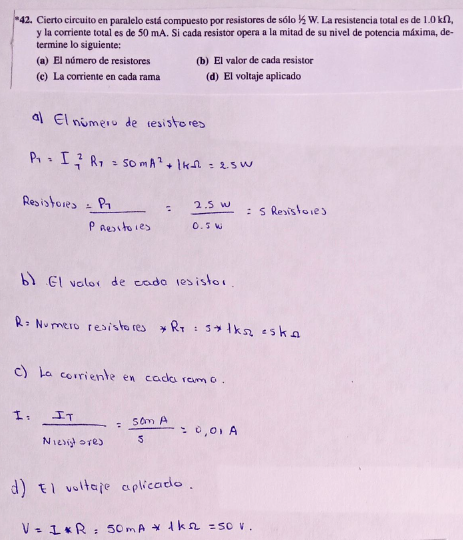 *42. Cierto circuito en paralelo está compuesto por resistores de sólo ½ W. La resistencia total es de 1.0 kΩ,
y la corriente total es de 50 mA. Si cada resistor opera a la mitad de su nivel de potencia máxima, de-
termine lo siguiente:
(a) El número de resistores (b) El valor de cada resistor
(c) La corriente en cada rama (d) El voltaje aplicado
a) El número de resistores
P₁ = I₁² R₁ = 50 mA² * 1kΩ = 2.5 W
Resistores = P₁ / P Resitores = 2.5 W / 0.5 W = 5 Resistores
b) El valor de cada resistor.
R = Numero resistores * R₁ = 5 * 1kΩ = 5kΩ
c) La corriente en cada ramo.
I = IT / N resistores = 50mA / 5 = 0,01 A
d) El voltaje aplicado.
V = I * R = 50mA * 1kΩ = 50 V.